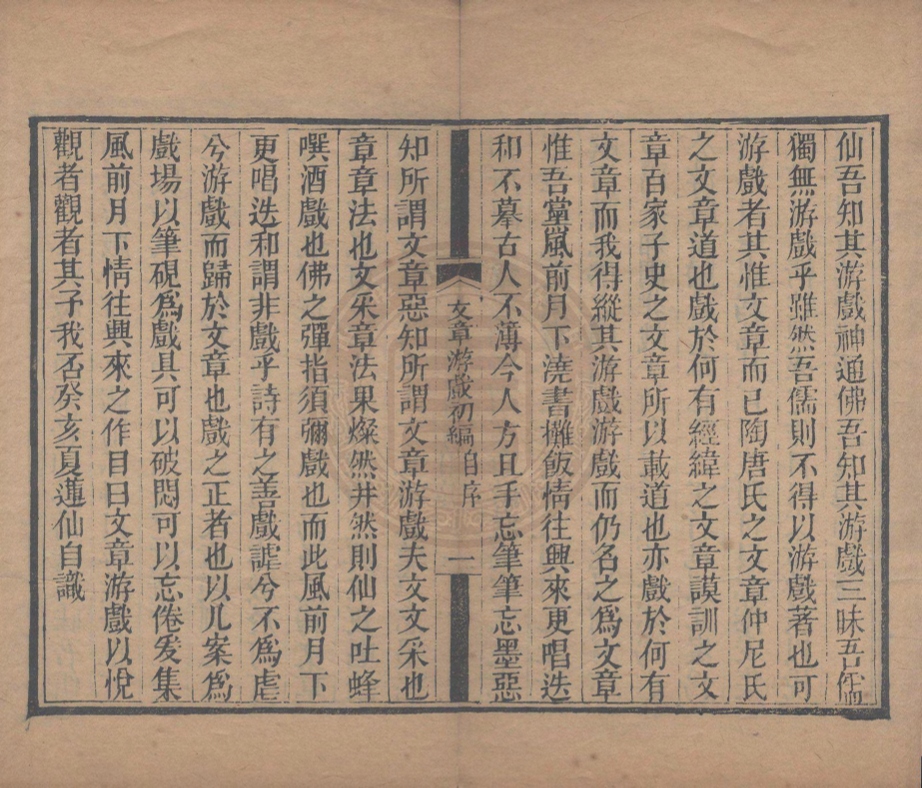 仙吾知其游戲神通佛吾知其游戲三昧吾儒
獨無游戲乎雖然吾儒則不得以游戲著也可
游戲者其惟文章而已陶唐氏之文章仲尼氏
之文章道也戲於何有經緯之文章謨訓之文
章百家子史之文章所以載道也亦戲於何有
文章而我得縱其游戲游戲而仍名之爲文章
惟吾黨風前月下澆書攤飯情往興來更唱迭
和不摹古人不薄今人方且手忘筆筆忘墨惡
文章游戲初編 自序 一
知所謂文章惡知所謂文章游戲夫文文采也
章章法也文采章法果燦然井然則仙之吐蜂
噀酒戲也佛之彈指須彌戲也而此風前月下
更唱迭和謂非戲乎詩有之善戲謔兮不爲虐
兮游戲而歸於文章也戲之正者也以几案爲
戲場以筆硯爲戲具可以破悶可以忘倦爰集
風前月下情往興來之作目曰文章游戲以悅
觀者觀者其予我否癸亥夏蓮仙自識